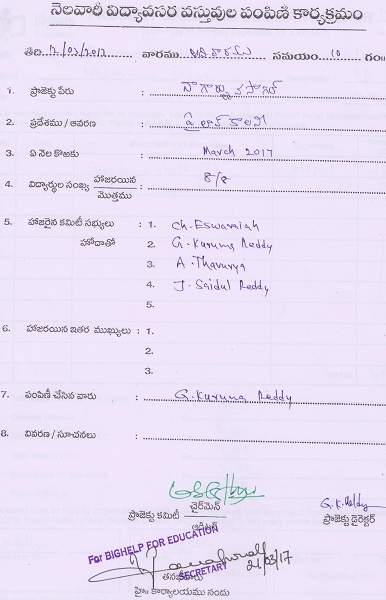 నెలవారీ విద్యావసర వస్తువుల పంపిణీ కార్యక్రమం
తేది వారము సమయం 10 గం॥
1. ప్రాజెక్టు పేరు :
2. ప్రదేశము / ఆవరణ :
3. ఏ నెల కొఱకు : March 2017
4. విద్యార్థుల సంఖ్య హాజరయిన / మొత్తము : 8/8
5. హాజరైన కమిటీ సభ్యులు : 1. Ch. Eswaraiah
హోదాతో 2. G. Karuna Reddy
3. A. Thavurya
4. J. Saidul Reddy
5.
6. హాజరయిన ఇతర ముఖ్యులు : 1.
2.
3.
7. పంపిణీ చేసిన వారు : G. Karuna Reddy
8. వివరణ / సూచనలు :
ప్రాజెక్టు కమిటీ చైర్‌మెన్ / ఆడిటర్
ప్రాజెక్టు డైరెక్టర్
For BIGHELP FOR EDUCATION
21/03/17
SECRETARY